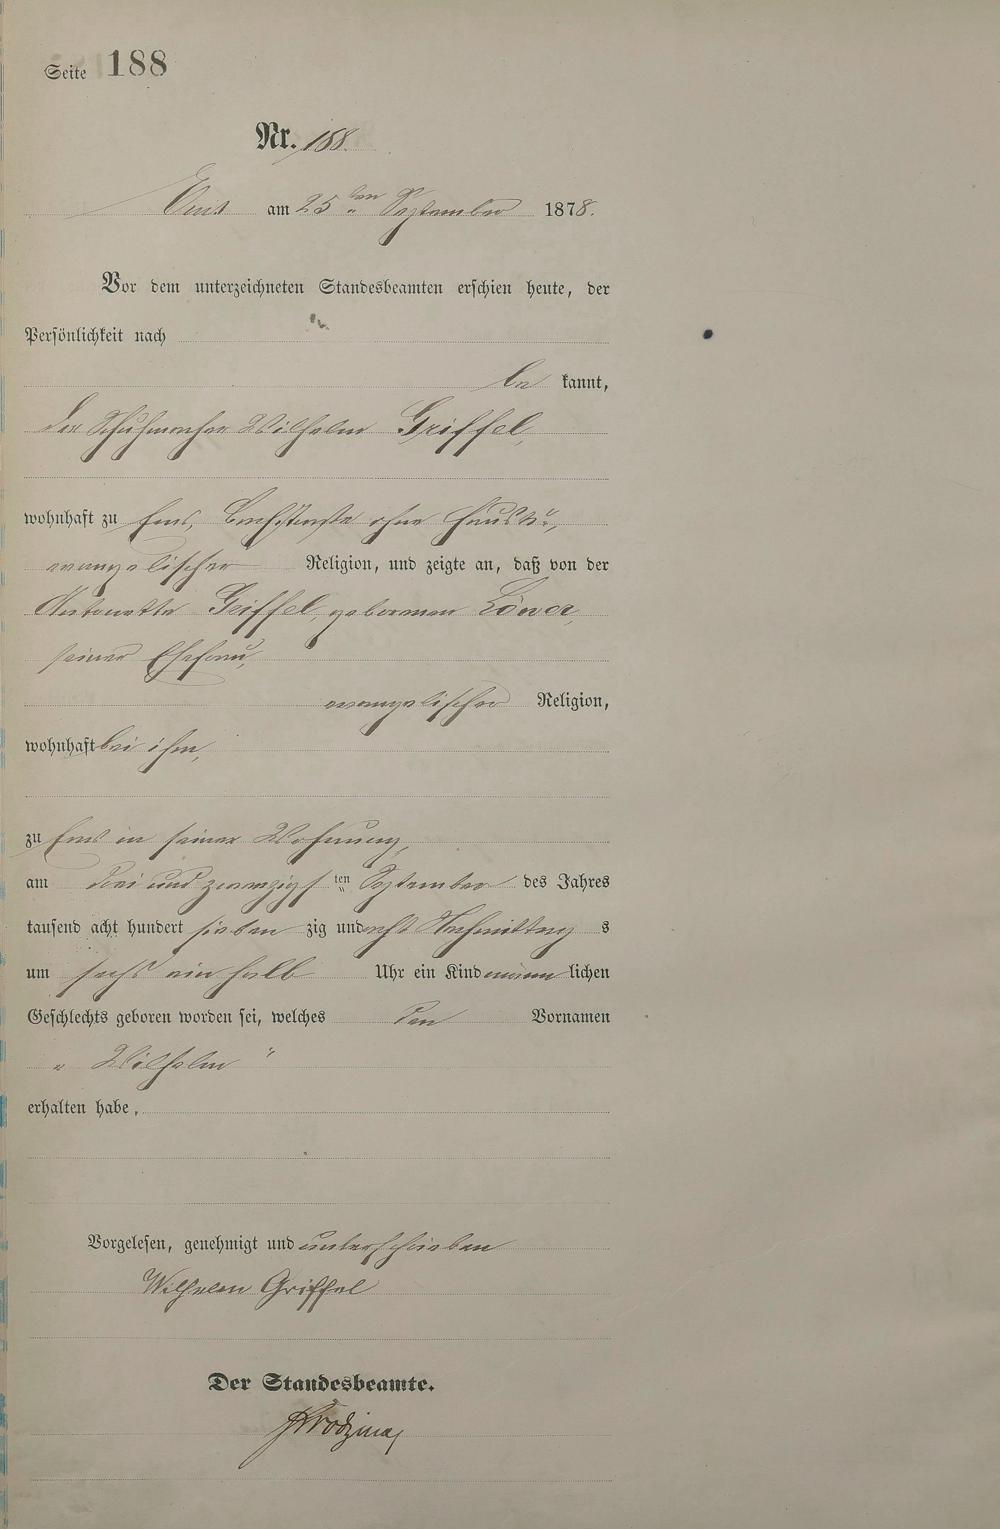 Seite 188
Nr. 188.
Ems am 25ten September 1878.
Vor dem unterzeichneten Standesbeamten erschien heute, der
Persönlichkeit nach
be kannt,
der Schuhmacher Wilhelm Griffel,
wohnhaft zu Ems, ohne Haus Nr.,
evangelischer Religion, und zeigte an, daß von der
Antonette Griffel, geborenen Löwer,
seiner Ehefrau,
evangelischer Religion,
wohnhaft bei ihm,
zu Ems in seiner Wohnung,
am drei und zwanzigsten September des Jahres
tausend acht hundert sieben zig und acht Nachmittag s
um sechs ein halb Uhr ein Kind männ lichen
Geschlechts geboren worden sei, welches den Vornamen
„ Wilhelm “
erhalten habe,
Vorgelesen, genehmigt und unterschrieben
Wilhelm Griffel
Der Standesbeamte.